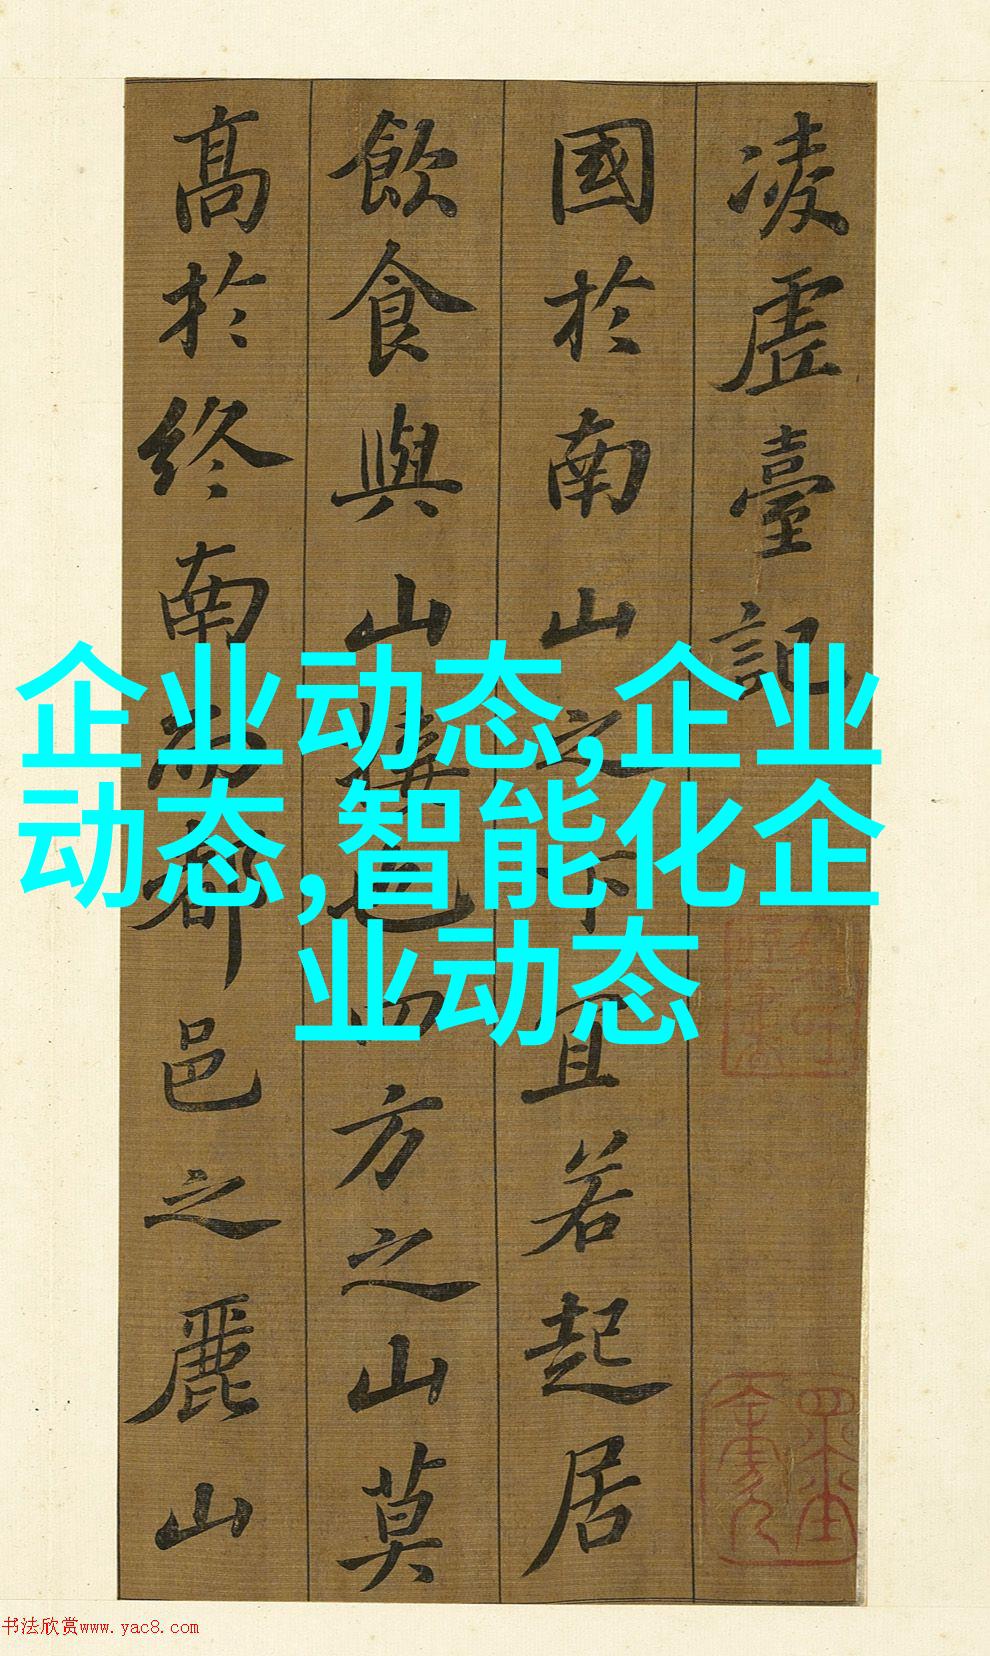 凌虛臺記
國於南山之下宜若起居
飲食與山接也四方之山莫
高於終南而都邑之麗山
企业动态,企业
动态,智能化企
业动态
书法欣赏www.yac8.com